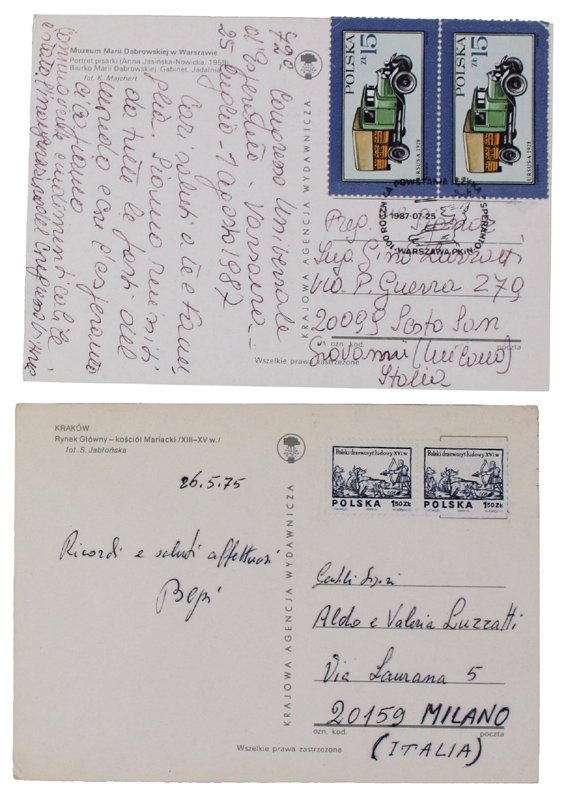 Muzeum Marii Dąbrowskiej w Warszawie
Portret pisarki (Anna Jasińska-Nowicka, 1959)
Biurko Marii Dąbrowskiej. Gabinet. Jadalnia
fot. K. Majchert
72o Congresso Universale
d'Esperanto - Varsavia -
25 luglio - 1 agosto 1987
Cari saluti a te e fami
glia. Siamo riuniti
da tutte le parti del
mondo ecse l'esperanto
KRAJOWA AGENCJA WYDAWNICZA
POLSKA
ZŁ 15
URSUS A 1928
POLSKA
ZŁ 15
URSUS A 1928
100 ROCZNICA POWSTANIA JĘZYKA ESPERANTO
1987-07-25
WARSZAWA PKiN
Sig. Gino Luzzatti
Via P. Guerra 279
20099 Sesto San
Giovanni (Milano)
Italia
ozn. kod.
poczta
Wszelkie prawa zastrzeżone
KRAKÓW
Rynek Główny – kościół Mariacki /XIII–XV w./
fot. S. Jabłońska
26.5.75
Ricordi e saluti affettuosi
Bepi
KRAJOWA AGENCJA WYDAWNICZA
Polski drzeworyt ludowy XVI w.
POLSKA 1,50 ZŁ
Polski drzeworyt ludowy XVI w.
POLSKA 1,50 ZŁ
Gentili Sig.ri
Aldo e Valeria Luzzatti
Via Laurana 5
20159 MILANO
(ITALIA)
ozn. kod.
poczta
Wszelkie prawa zastrzeżone